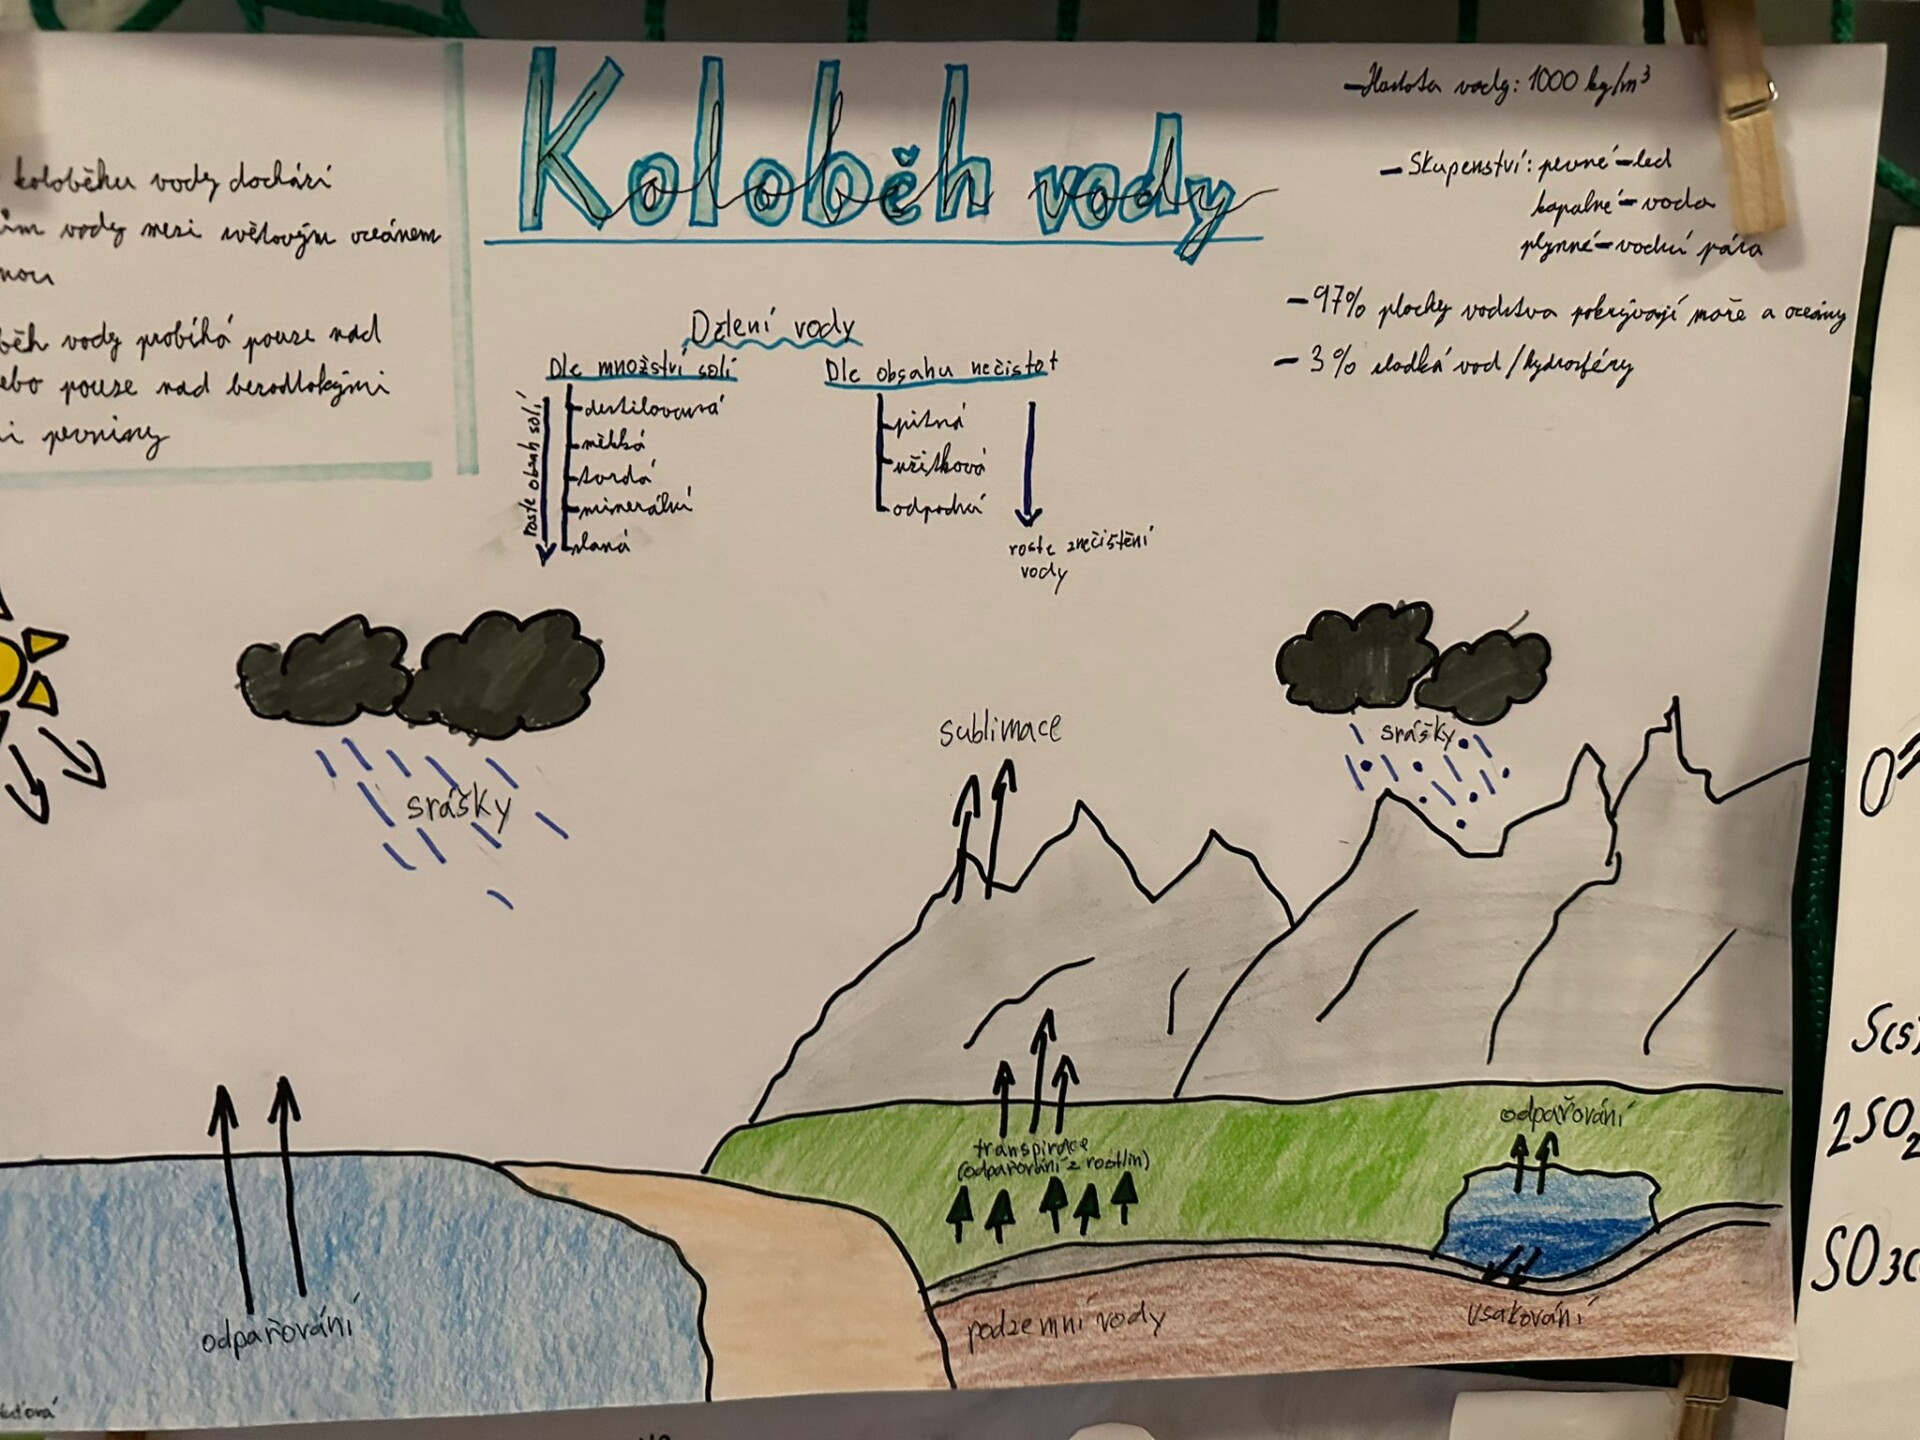 Koloběh vody
koloběhu vody dochází
vody mezi světovým oceánem
vody probíhá pouze nad
pouze nad bezodtokými
pevniny
- Hustota vody: 1000 kg/m³
- Skupenství: pevné - led
kapalné - voda
plynné - vodní pára
- 97% plochy vodstva pokrývají moře a oceány
- 3% sladká vod / hydrosféry
Dělení vody
Dle množství solí
roste obsah solí
destilovaná
měkká
tvrdá
minerální
slaná
Dle obsahu nečistot
pitná
užitková
odpadní
roste znečištění
vody
srážky
sublimace
srážky
transpirace
(odpařování z rostlin)
odpařování
odpařování
podzemní vody
vsakování
2SO₂
SO₃